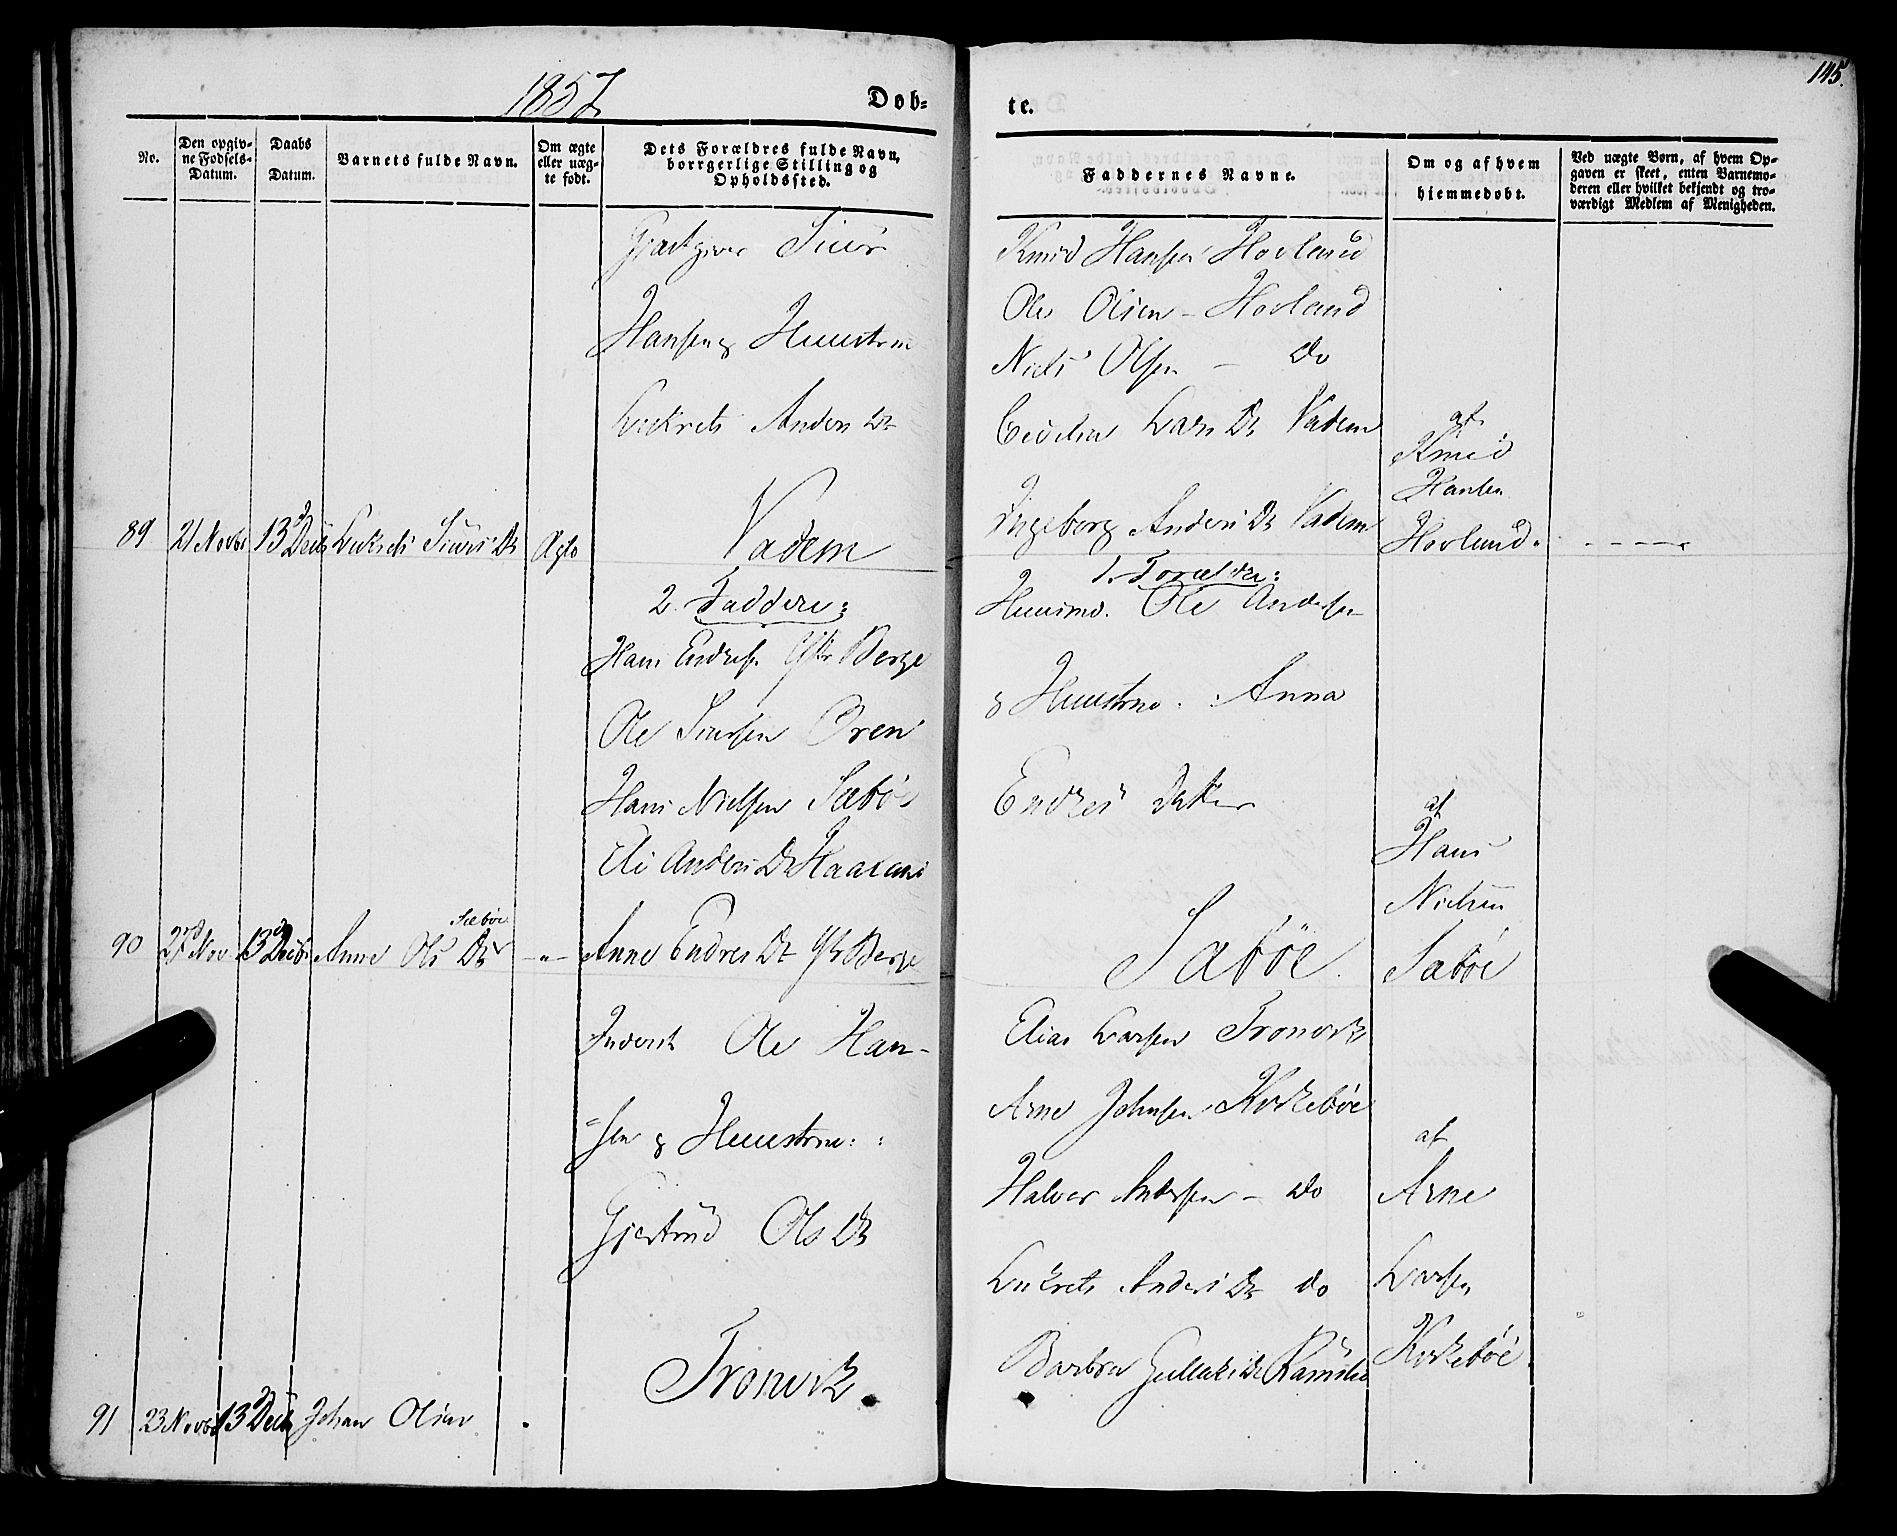 1857
Døb-
te.
145.
No.
Den opgiv-
ne Fødsels-
Datum.
Daabs
Datum.
Barnets fulde Navn.
Om ægte
eller uæg-
te født.
Dets Forældres fulde Navn,
borrgerlige Stilling og
Opholdssted.
Faddernes Navne.
Om og af hvem
hjemmedøbt.
Ved uægte Børn, af hvem Op-
gaven er skeet, enten Barnemo-
deren eller hvilket bekjendt og tro-
værdigt Medlem af Menigheden.
89
21 Novbr
13 Decbr
Lukrets Siurs Dr
Ægte
Gjæstgiver Siur
Hansen & Huustrue
Lukrets Anders Dr
Vadem
Knud Hansen Hovland
Ole Olsen - Hovland
Niels Olsen - Do
Cecilia Lars Dr Vadem
Ingeborg Anders Dr Vadem
af
Knud
Hansen
Hovland.
90
Nov
13 Decbr
Anne Ols Dr
Sæbøe
-"-
2. Faddere:
Hans Endresen Ytr Berge
Ole Siursen Øren
Hans Nielsen Sæbøe
Eli Anders Dr
Anne Endres Dr Ytr Berge
1. Forældre:
Huusmd. Ole Andersen
& Huustrue. Anna
Endres Datter
Sæbøe.
af
Hans
Nielsen
Sæbøe
91
23 Novbr
13 Decbr
Johan Olsen
Inderst Ole Han-
=sen & Huustrue:
Gjertrud Ols Dr
Tronvik.
Elias Larsen Tronvik
Arne Johnsen Kirkebøe
Halvor Andersen - Do
Lukrets Anders Dr Do
Barbra
af
Arne
Larsen
Kirkebøe.